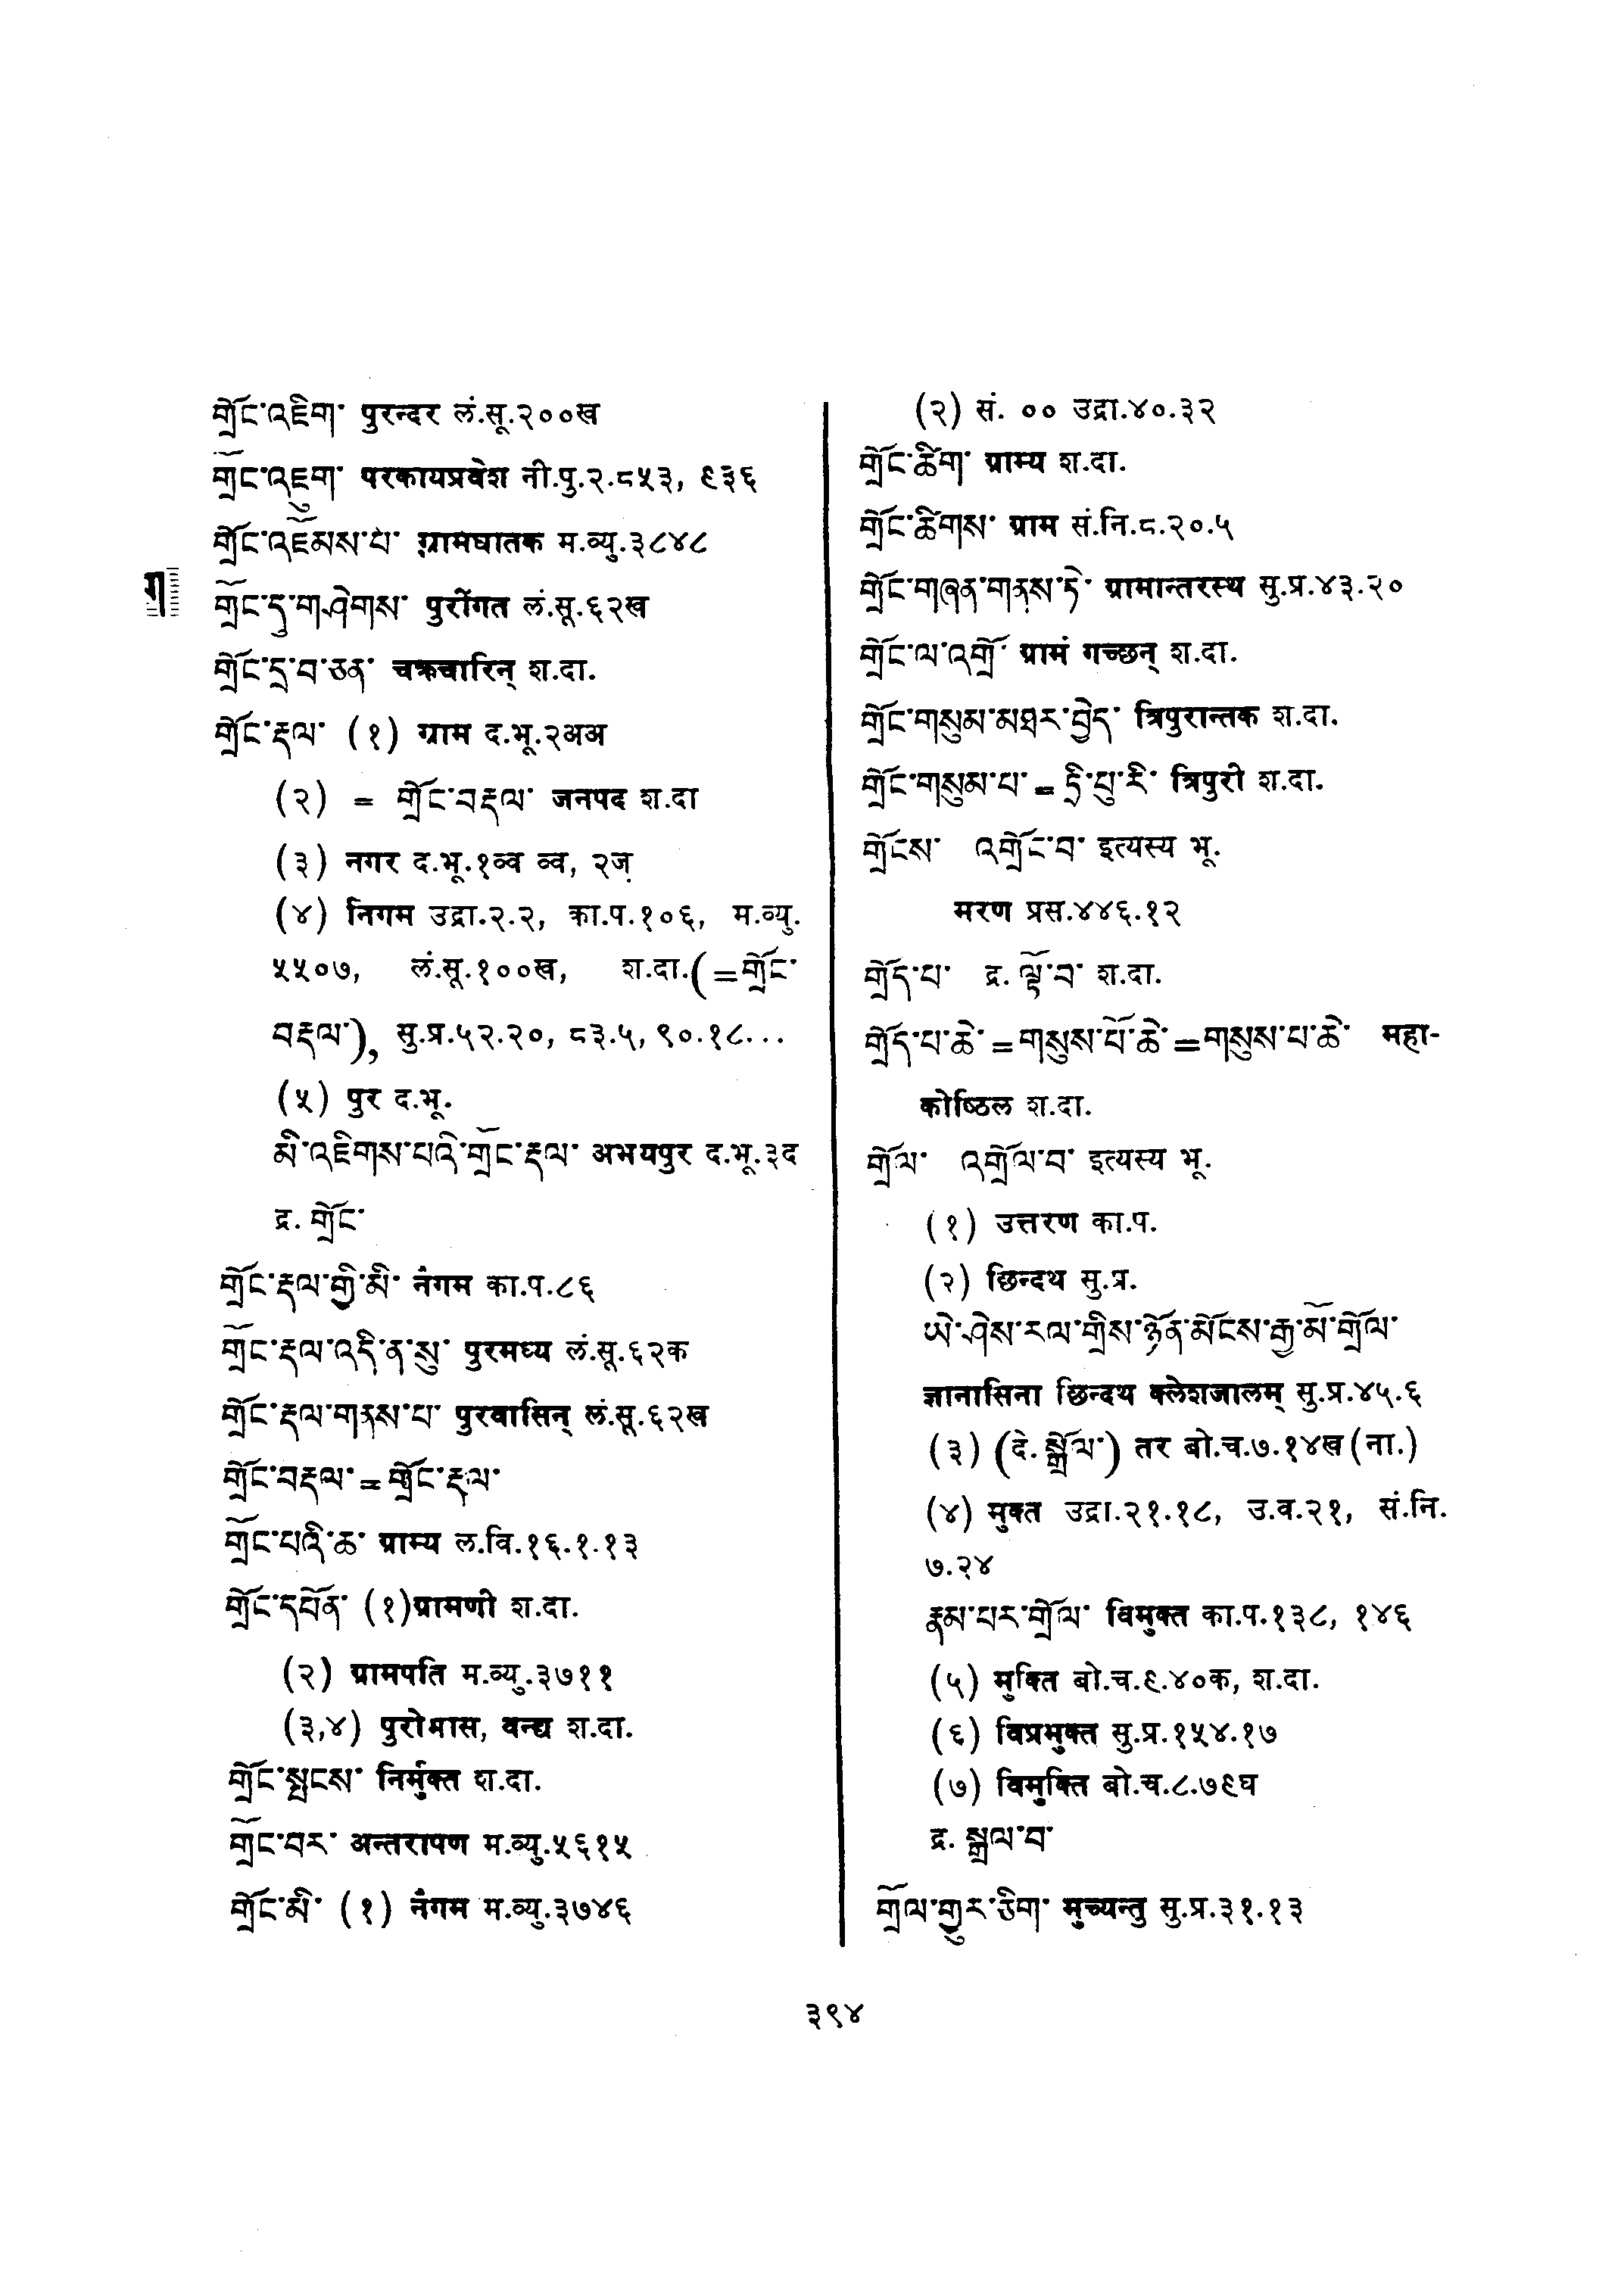 གྲོང་འཇིག་ पुरन्दर लं.सू.२००ख
གྲོང་འཇུག་ परकायप्रवेश नी.पु.२.८५३, ९३६
གྲོང་འཇོམས་པ་ ग्रामघातक म.व्यु.३८४८
ག
གྲོང་དུ་གཤེགས་ पुरींगत लं.सू.६२ख
གྲོང་དྲ་བ་ཅན་ चक्रचारिन् श.दा.
གྲོང་རྡལ་ (१) ग्राम द.भू.२अअ
(२) = གྲོང་བརྡལ་ जनपद श.दा
(३) नगर द.भू.१व्व व्व, २ज
(४) निगम उद्रा.२.२, का.प.१०६, म.व्यु.
५५०७, लं.सू.१००ख, श.दा.(=གྲོང་
བརྡལ་), सु.प्र.५२.२०, ८३.५, ९०.१८...
(५) पुर द.भू.
མི་འཇིགས་པའི་གྲོང་རྡལ་ अभयपुर द.भू.३द
द्र. གྲོང་
གྲོང་རྡལ་གྱི་མི་ नैगम का.प.८६
གྲོང་རྡལ་འདི་ན་སུ་ पुरमध्य लं.सू.६२क
གྲོང་རྡལ་གནས་པ་ पुरवासिन् लं.सू.६२ख
གྲོང་བརྡལ་=གྲོང་རྡལ་
གྲོང་པའི་ཆ་ ग्राम्य ल.वि.१६.१.१३
གྲོང་དཔོན་ (१)ग्रामणी श.दा.
(२) ग्रामपति म.व्यु.३७११
(३,४) पुरोभास, वन्द्य श.दा.
གྲོང་སྤངས་ निर्मुक्त श.दा.
གྲོང་བར་ अन्तरापण म.व्यु.५६१५
གྲོང་མི་ (१) नैगम म.व्यु.३७४६
(२) सं. ०० उद्रा.४०.३२
གྲོང་ཚིག་ ग्राम्य श.दा.
གྲོང་ཚིགས་ ग्राम सं.नि.८.२०.५
གྲོང་གཞན་གནས་ཏེ་ ग्रामान्तरस्थ सु.प्र.४३.२०
གྲོང་ལ་འགྲོ་ ग्रामं गच्छन् श.दा.
གྲོང་གསུམ་མཐར་བྱེད་ त्रिपुरान्तक श.दा.
གྲོང་གསུམ་པ་=ཏྲི་པུ་རི་ त्रिपुरी श.दा.
གྲོངས་ འགྲོང་བ་ इत्यस्य भू.
मरण प्रस.४४६.१२
གྲོད་པ་ द्र. ལྟོ་བ་ श.दा.
གྲོད་པ་ཆེ་=གསུས་པོ་ཆེ་=གསུས་པ་ཆེ་ महा-
कोष्ठिल श.दा.
གྲོལ་ འགྲོལ་བ་ इत्यस्य भू.
(१) उत्तरण का.प.
(२) छिन्दथ सु.प्र.
ཡེ་ཤེས་རལ་གྲིས་ཉོན་མོངས་རྒྱ་མོ་གྲོལ་
ज्ञानासिना छिन्दथ क्लेशजालम् सु.प्र.४५.६
(३) (དེ.སྒྲོལ་) तर बो.च.७.१४ख(ना.)
(४) मुक्त उद्रा.२१.१८, उ.व.२१, सं.नि.
७.२४
རྣམ་པར་གྲོལ་ विमुक्त का.प.१३८, १४६
(५) मुक्ति बो.च.९.४०क, श.दा.
(६) विप्रमुक्त सु.प्र.१५४.१७
(७) विमुक्ति बो.च.८.७९घ
द्र. སྒྲལ་བ་
གྲོལ་གྱུར་ཅིག་ मुच्यन्तु सु.प्र.३१.१३
३९४